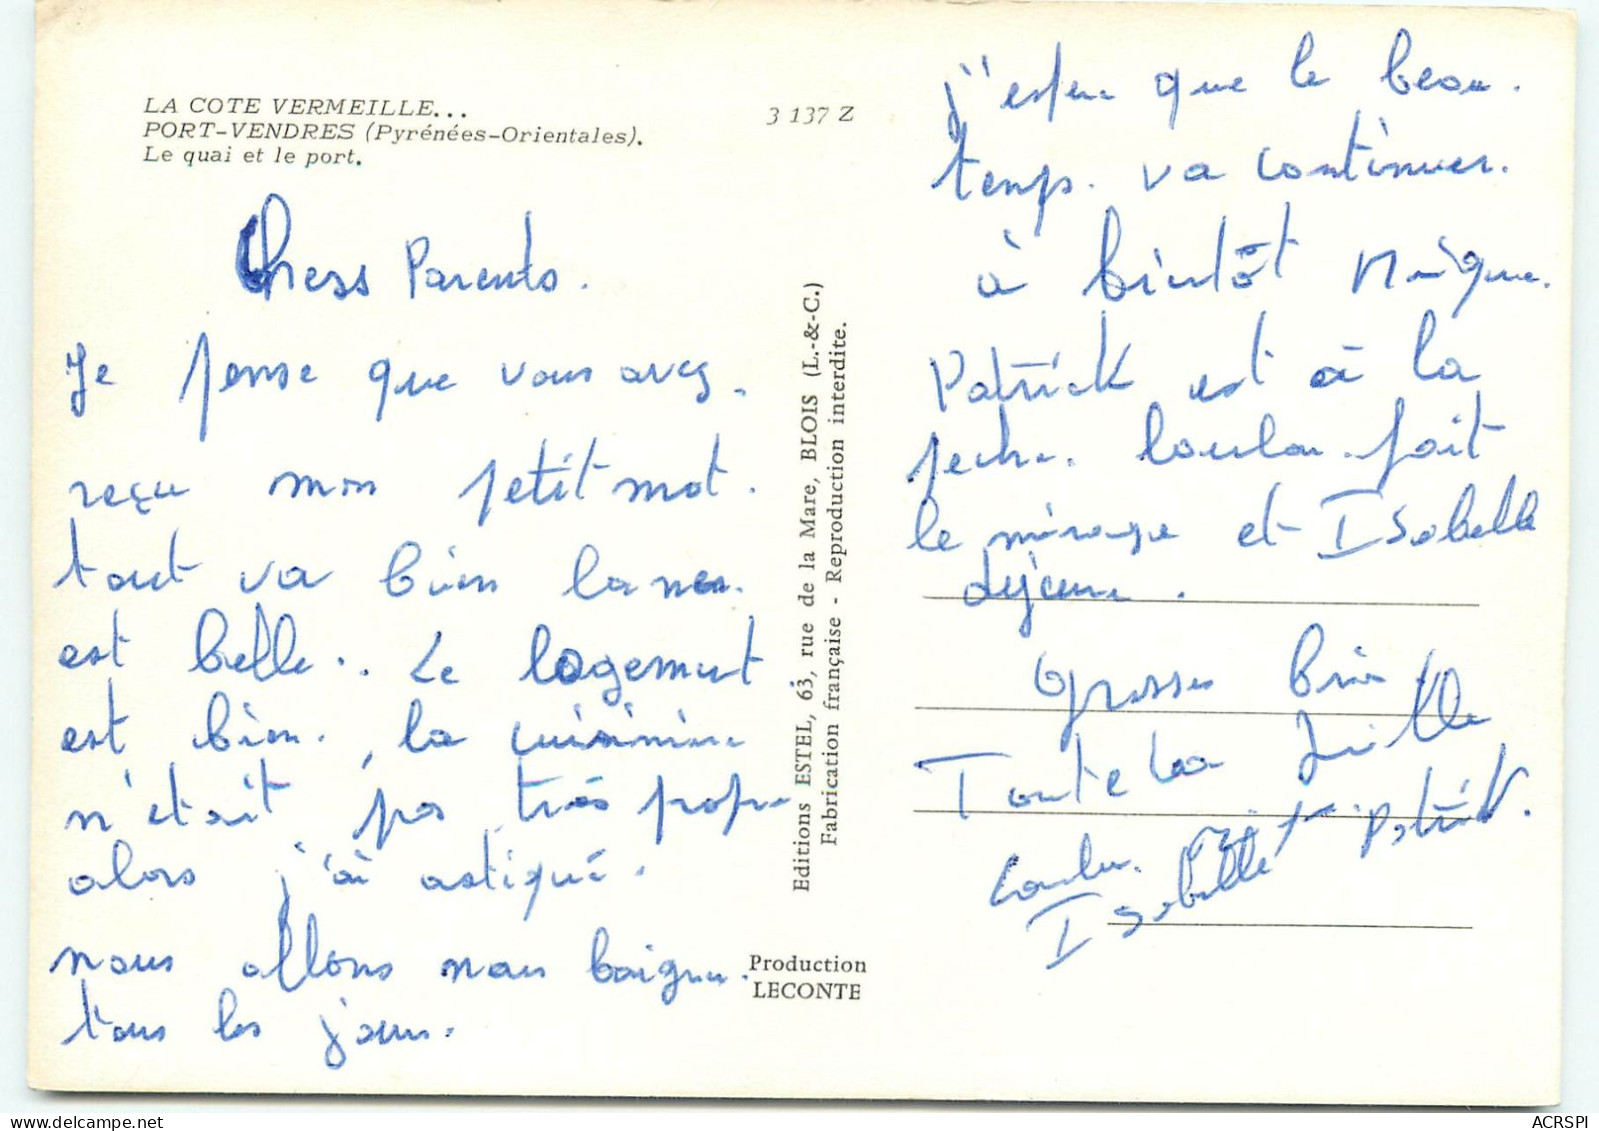 LA COTE VERMEILLE...
PORT-VENDRES (Pyrénées-Orientales).
Le quai et le port.
3 137 Z
Chers Parents.
Je pense que vous avez.
reçu mon petit mot.
tout va bien la mer.
est belle.. Le logement
est bien. la cuisinière
n'était pas très propre
alors j'ai astiqué.
nous allons nous baigner.
tous les jours.
Editions ESTEL, 63, rue de la Mare, BLOIS (L.-&-C.)
Fabrication française - Reproduction interdite.
Production
LECONTE
j'espère que le beau.
temps. va continuer.
à bientôt
Patrick est à la
peche. Loulou fait
le ménage et Isabelle
dejeune.
Grosses bises.
Toute la famille
Loulou. Patrick.
Isabelle
ACRSPI